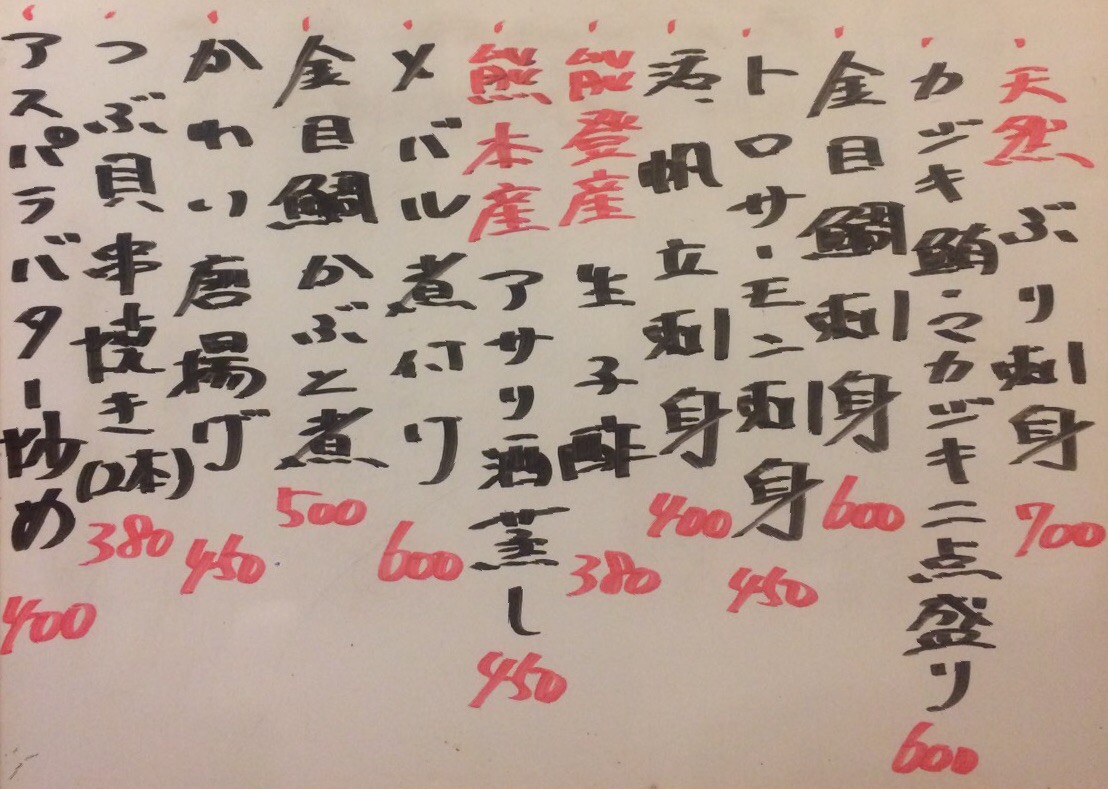 天然ぶり刺身 700
カジキ鮪・マカジキ二点盛り 600
金目鯛刺身 600
トロサーモン刺身 450
活帆立刺身 400
能登産生子酢 380
熊本産アサリ酒蒸し 450
メバル煮付け 600
金目鯛かぶと煮 500
かわり唐揚げ 450
つぶ貝串焼き(2本) 380
アスパラバター炒め 400